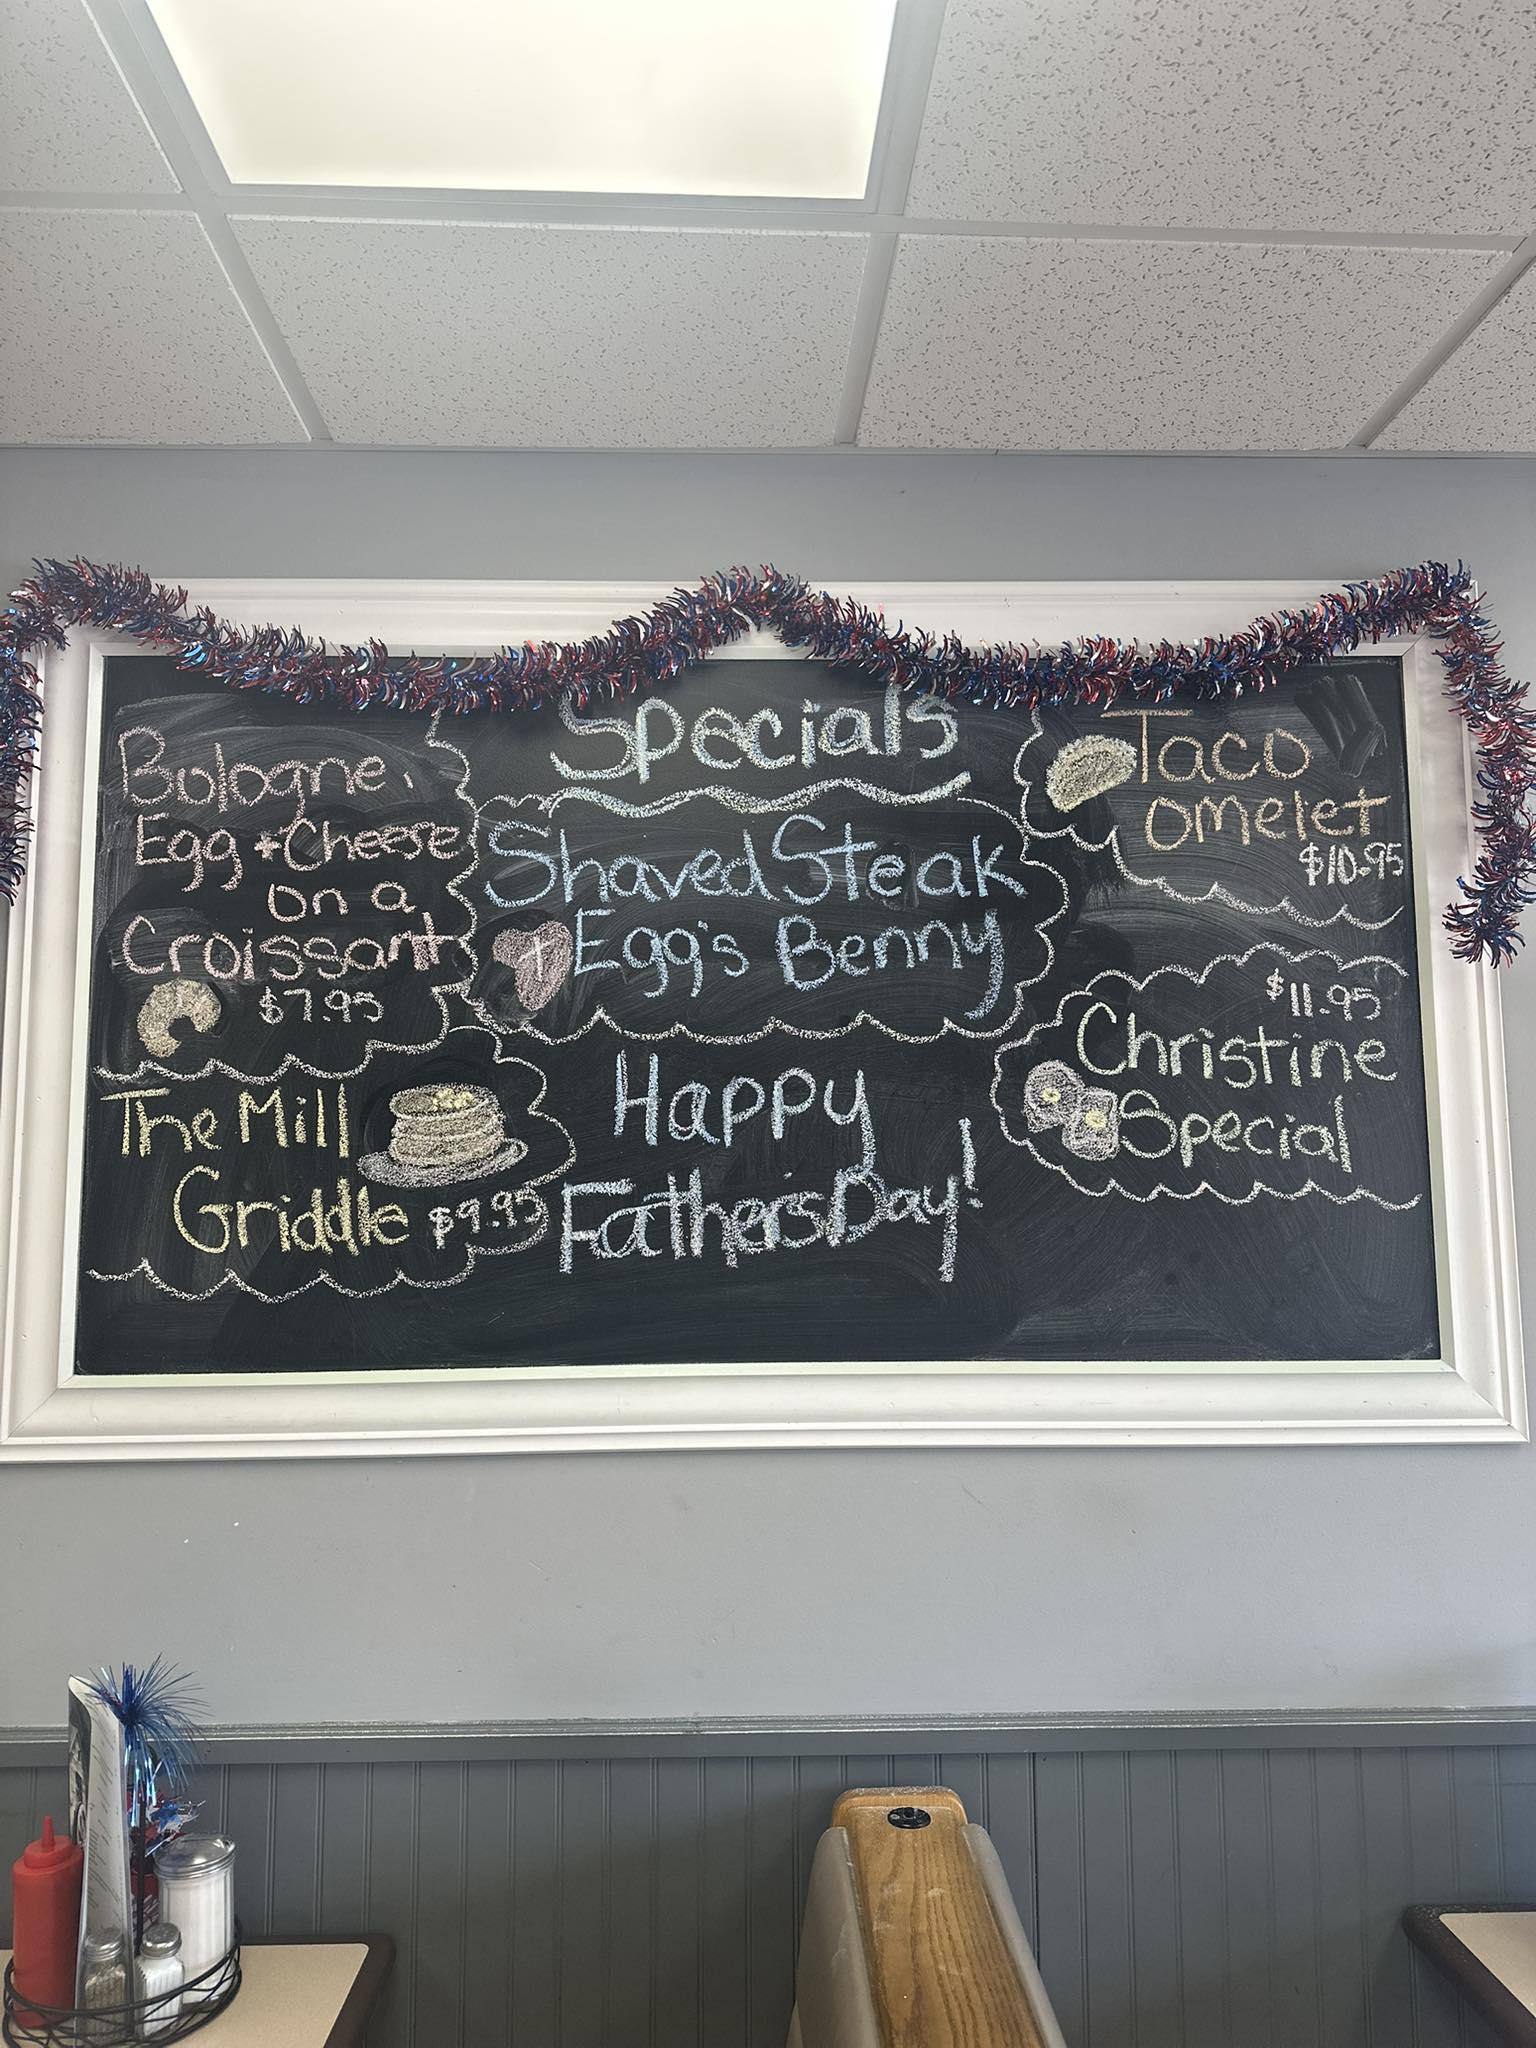 Specials
Bologne,
Egg + Cheese
on a
Croissant
$7.95
The Mill
Griddle $9.95
Shaved Steak
Egg's Benny
Happy
Father's Day!
Taco
omelet
$10.95
$11.95
Christine
Special